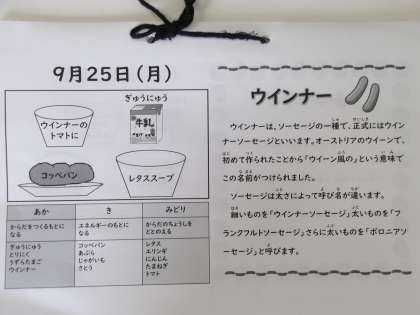 9月25日(月)
ぎゅうにゅう
ウインナーの
トマトに
牛乳
コッペパン
レタススープ
あか
き
みどり
からだをつくるもとに
なる
エネルギーのもとに
なる
からだのちょうしを
ととのえる
ぎゅうにゅう
とりにく
うずらたまご
ウインナー
コッペパン
あぶら
じゃがいも
さとう
レタス
エリンギ
にんじん
たまねぎ
トマト
ウインナー
ウインナーは、ソーセージの一種で、正式にはウイ
ンナーソーセージといいます。オーストリアのウイーンで、
初めて作られたことから「ウイーン風の」という意味で
この名前がつけられました。
ソーセージは太さによって呼び名が違います。
細いものを「ウインナーソーセージ」太いものを「フ
ランクフルトソーセージ」さらに太いものを「ボロニアソ
ーセージ」と呼びます。